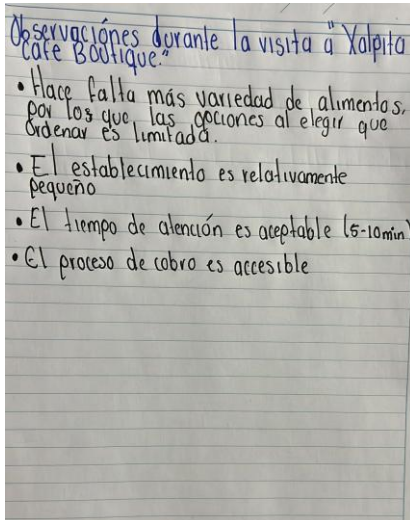 Observaciónes durante la visita a "Xalpita
Cafe Boutique."
• Hace falta más variedad de alimentos,
por los que, las opciones al elegir que
ordenar es limitada.
• El establecimiento es relativamente
pequeño
• El tiempo de atención es aceptable (5-10min)
• El proceso de cobro es accesible